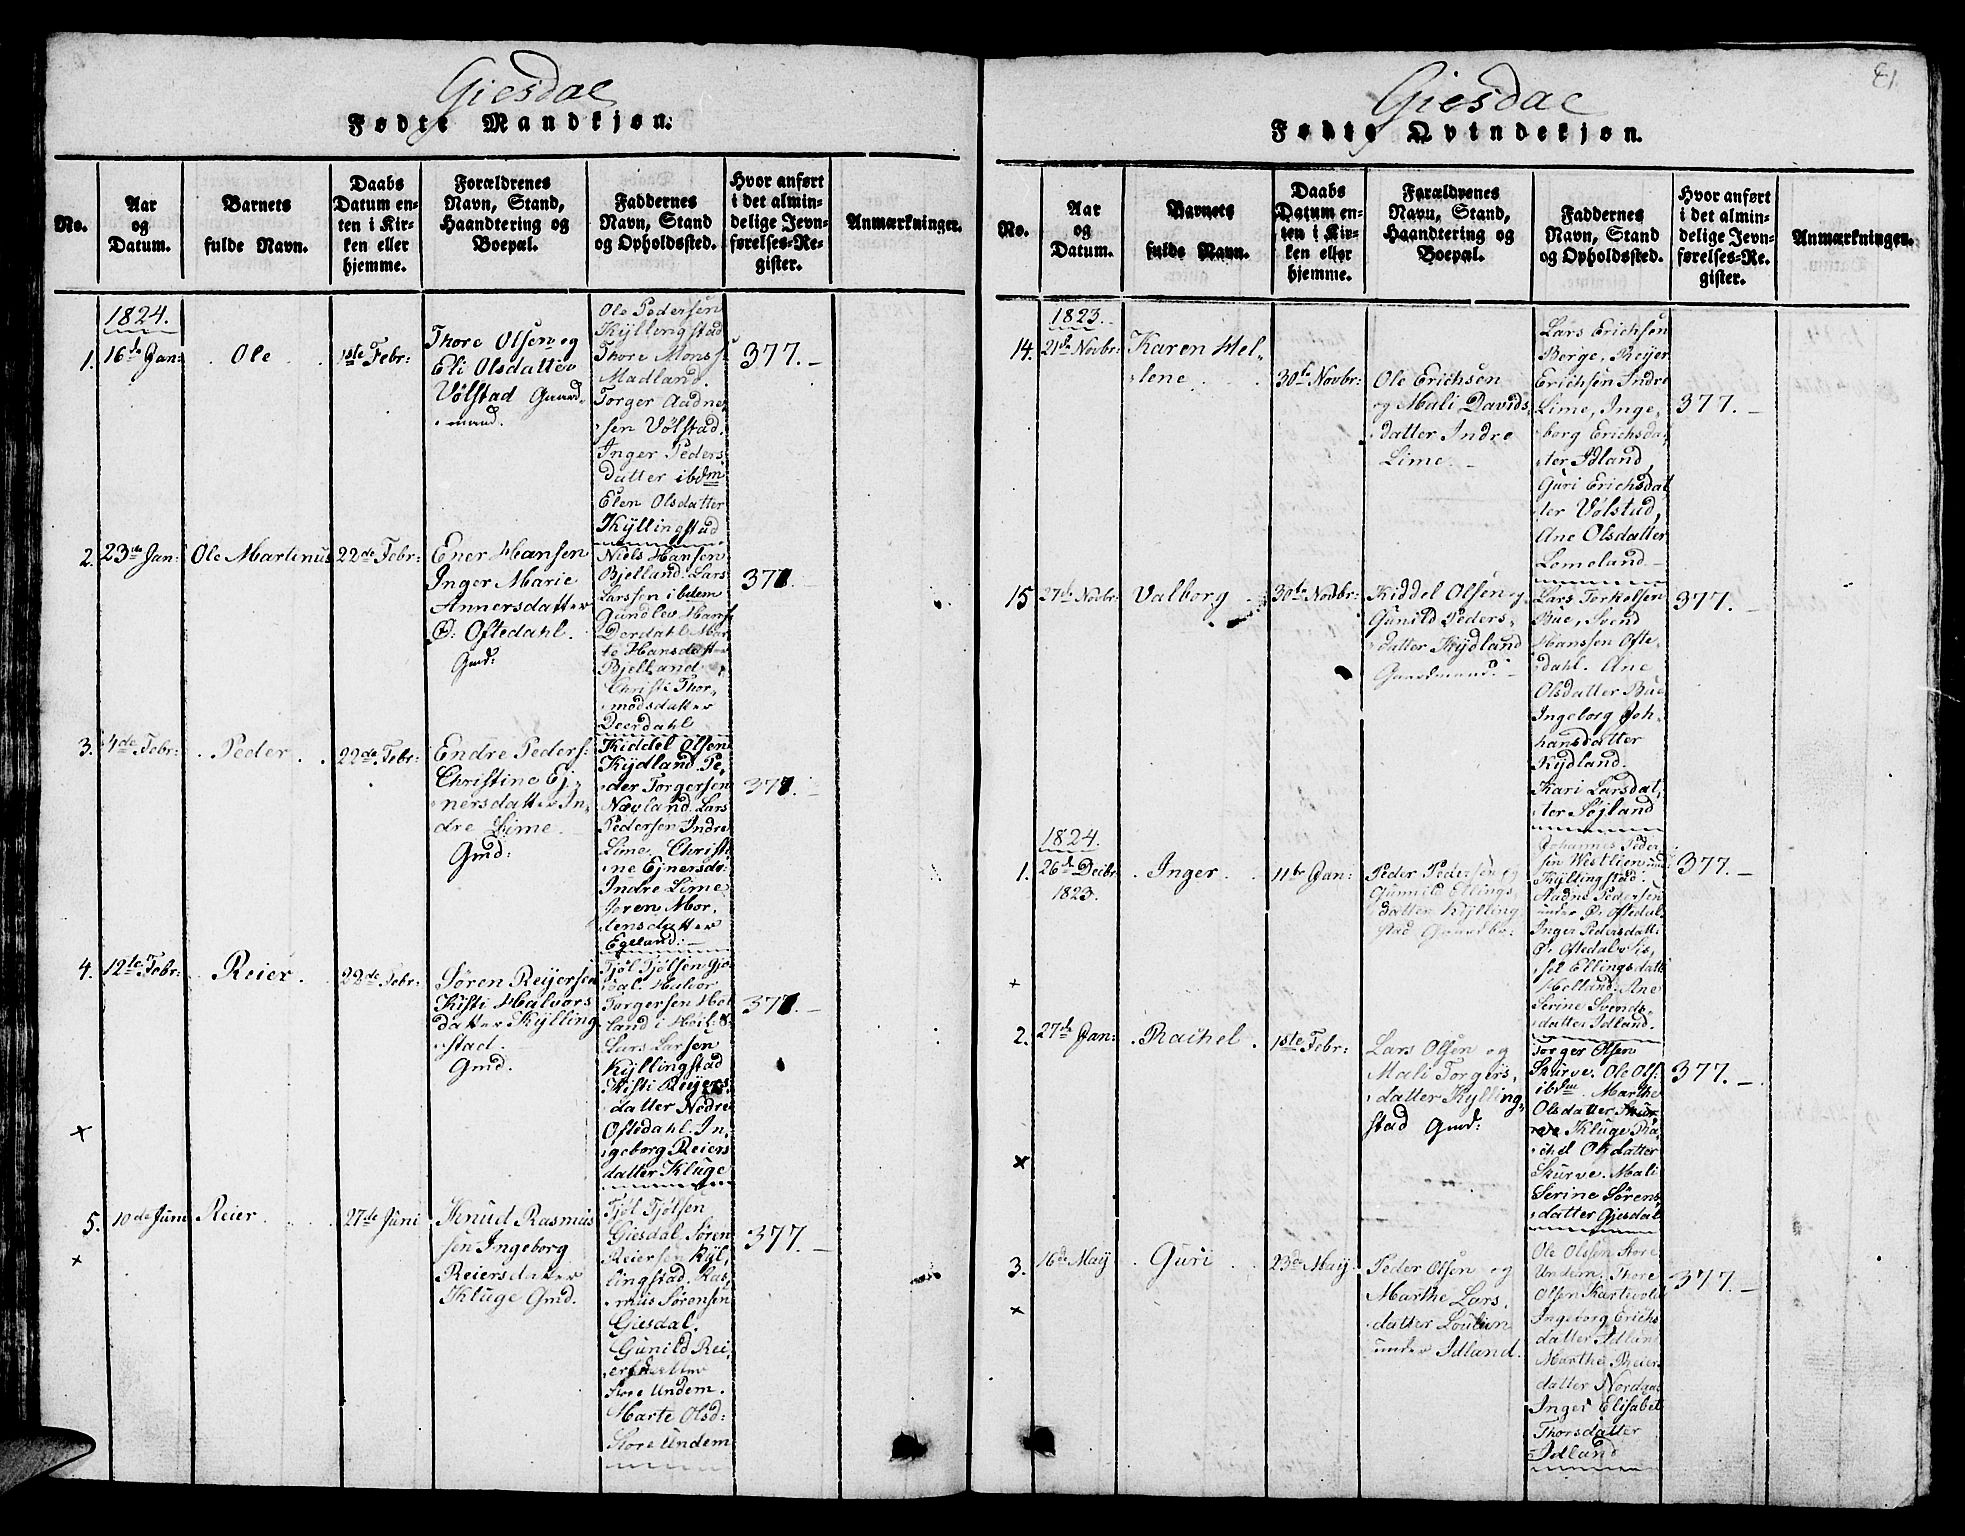 Giesdal
Fødte Mandkjøn.
No.
Aar
og
Datum.
Barnets
fulde Navn.
Daabs
Datum en-
ten i Kir-
ken eller
hjemme.
Forældrenes
Navn, Stand,
Haandtering og
Boepæl.
Faddernes
Navn, Stand
og Opholdssted.
Hvor anført
i det almin-
delige Jevn-
førelses-Re-
gister.
Anmærkninger.
1824.
1.
16de Jan:
Ole
1ste Febr:
Thore Olsen og
Eli Olsdatter
Vølstad Gaard-
mand.
Ole Pedersen
Kÿllingstad
Thore Monss:
Madland.
Torger Aadne-
sen Vølstad.
Inger Peders
datter ibdm
Elen Olsdatter
Kÿllingstad
377.
2.
23de Jan:
Ole Martinus
22de Febr:
Ener Hansen
Inger Marie
Annersdatter
Ø. Oftedahl.
Gmd:
Niels Hansen
Bjelland. Lars
Larssen ibdem
Gundlev Hans
Derdahl Mar
te Hansdatt
Bjelland.
Christi Thor-
modsdatter
Deerdahl
377.
3.
4de Febr:
Peder
22de Febr:
Endre Peders:
Christine Ej-
nersdatter In-
dre Lime.
Gmd:
Kiddel Olsen
Kÿdland. Pe-
der Torgersen
Nævland. Lars
Pedersen Indre
Lime. Christi
ne Ejnersdr
Indre Lime
Joren Mor-
tensdatter
Egeland.
377.
4.
12te Febr:
Reier
22de Febr:
Søren Reÿersen
Kisti Halvors
datter Kÿlling-
stad.
Gmd.
Tjøl Tjølsen Gjes-
dal. Halvor
Torgersen Høl
land i Høil:
Lars Larsen
Kÿllingstad
Kisti Reÿers
datter Nedre
Oftedahl. In-
geborg Reiers
datter Kluge
377.
5.
10de Juni
Reier
27de Juni
Knud Rasmus
sen Ingeborg
Reiersdatter
Kluge Gmd.
Tjøl Tjølsen
Giesdal. Søren
Reiersen Kÿl-
lingstad. Ras-
mus Sørensen
Giesdal.
Gunild Rei-
Store Undem.
Marte Olsd:
Store Undem
377.
81.
Giesdal
Fødte Qvindekjøn.
No.
Aar
og
Datum.
Barnets
fulde Navn.
Daabs
Datum en-
ten i Kir-
ken eller
hjemme.
Forældrenes
Navn, Stand,
Haandtering og
Boepæl.
Faddernes
Navn, Stand
og Opholdssted.
Hvor anført
i det almin-
delige Jevn-
førelses-Re-
gister.
Anmærkninger.
1823.
14.
21de Novbr:
Karen Hel-
lene
30te Novbr:
Ole Erichsen
og Mali Davids-
datter Indre
Lime.
Lars Erichsen
Berge, Reÿer
Erichsen Indre
Lime, Inge-
borg Erichsda-
ter Idland,
Guri Erichsdat
ter Vølstad,
Ane Olsdatter
Lomeland
377.
15
27de Novbr:
Valborg
30te Novbr:
Kiddel Olsen og
Gunild Peders-
datter Kÿdland
Gaardmand.
Lars Torkelsen
Bue, Svend
Hanssen Ofte-
dahl. Ane
Olsdatter Bue
Ingeborg Joh-
hansdatter
Kÿdland.
Kari Larsdat-
ter Søjland
377.
1824.
1.
26de Decbr
1823.
Inger
11te Jan:
Peder Pedersen og
Gunnild Ellings-
datter Kÿlling-
stad
Johannes Peder
sen Westlien und
Kÿllingstad.
Aadne Pedersen
under Ø. Oftedal
Inger Pedersdatt:
Ø. Oftedal Kis-
sel Ellingsdatt:
Holland. Ane
Serine Svends-
datter Idland.
377.
2.
27de Jan:
Rachel
1ste Febr:
Lars Olsen og
Mali Torgers-
datter Kÿlling-
stad Gmd:
Torger Olsen
Skurve. Ole Ols:
ibdm. Marthe
Olsdatter Skur-
ve Kluge Ra-
chel Olsdatter
Skurve. Mali
Serine Sørens-
datter Gjesdal
377.
3.
16de Maÿ
Guri
23de Maÿ
Peder Olsen og
Marthe Lars-
datter
under Idland.
Ole Olsen Store
Undem. Thore
Olsen
Ingeborg Erichs
datter Idland
Marthe Reiers
datter
Inger Elisabet
Thorsdatter
Idland
377.